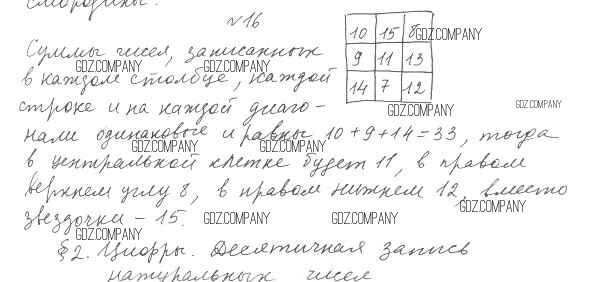 смородины.
№16
10 15 8 GDZ.COMPANY
Суммы чисел, записанных
GDZ.COMPANY GDZ.COMPANY
9 11 13
в каждом столбце, каждой
14 7 12
строке и на каждой диаго-
GDZ.COMPANY GDZ.COMPANY
нали одинаковые и равны 10+9+14=33, тогда
GDZ.COMPANY GDZ.COMPANY
в центральной клетке будет 11, в правом
GDZ.COMPANY
верхнем углу 8, в правом нижнем 12, вместо
GDZ.COMPANY
звездочки - 15. GDZ.COMPANY GDZ.COMPANY
GDZ.COMPANY
§2. Цифры. Десятичная запись
натуральных чисел